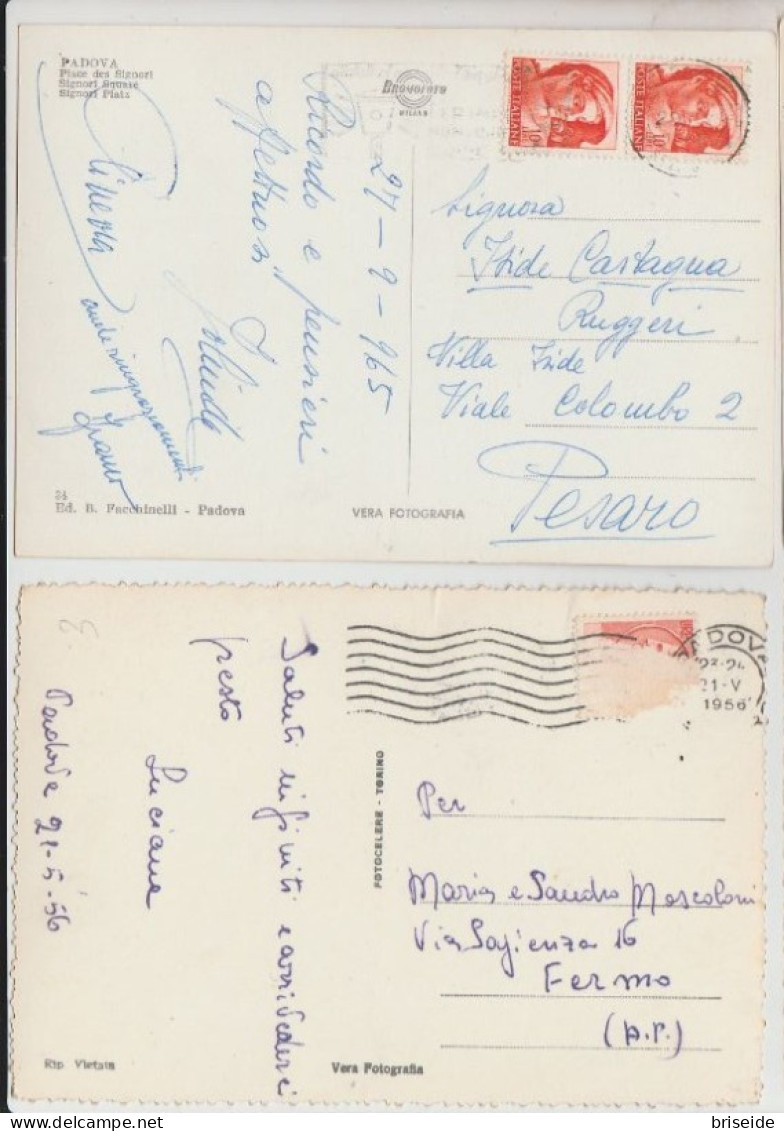 PADOVA
Place des Signori
Signori Square
Signori Platz
Bromofoto
MILANO
POSTE ITALIANE
POSTE ITALIANE
27-9-965
Ricordo e pensieri
affettuosi
Jolinda
Ginevra
Signora
Iside Castagna
Ruggeri
Villa Iside
Viale Colombo 2
Pesaro
34
Ed. B. Facchinelli - Padova
VERA FOTOGRAFIA
Padova 21-5-56
Saluti infiniti e arrivederci
presto
Luciana
FOTOCELERE - TORINO
21-V
1956
Per
Maria e Sandro Moscoloni
Via Sapienza 16
Fermo
(A.P.)
Rip. Vietata
Vera Fotografia
delcampe.net
briseide